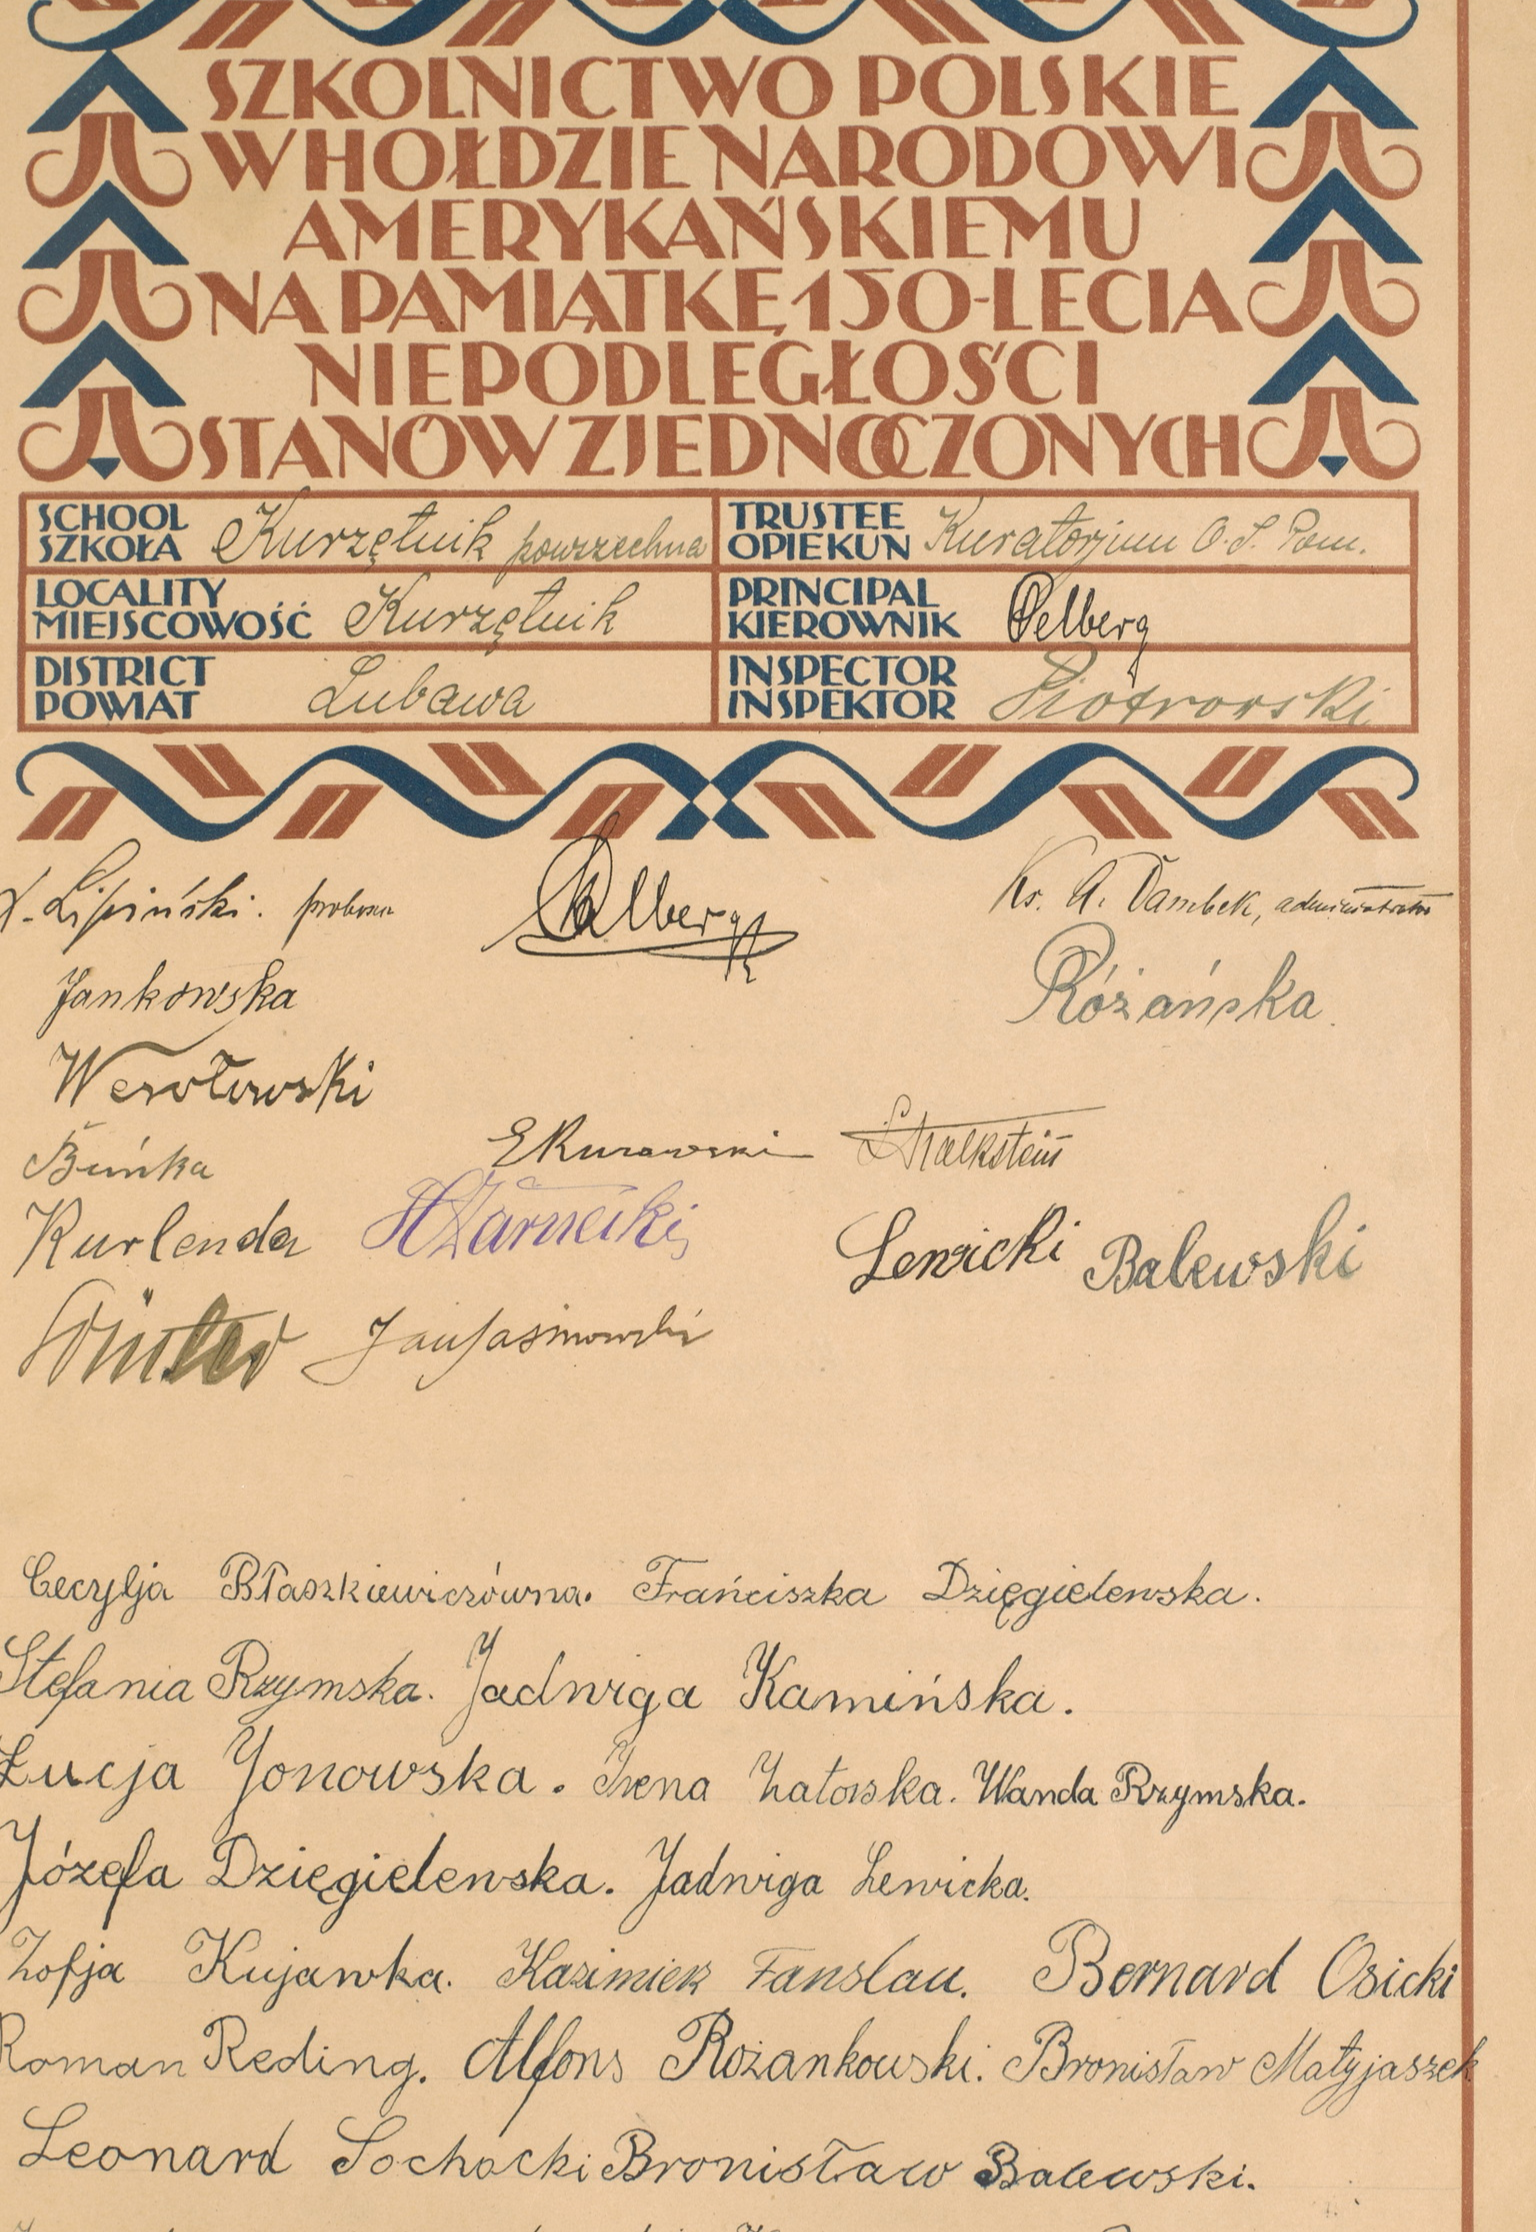 SZKOLNICTWO POLSKIE
W HOŁDZIE NARODOWI
AMERYKAŃSKIEMU
NA PAMIĄTKĘ 150-LECIA
NIEPODLEGŁOŚCI
STANÓW ZJEDNOCZONYCH
SCHOOL
SZKOŁA Kurzętnik powszechna
TRUSTEE
OPIEKUN Kuratorjum O. S. Pom.
LOCALITY
MIEJSCOWOŚĆ Kurzętnik
PRINCIPAL
KIEROWNIK Pelberg
DISTRICT
POWIAT Lubawa
INSPECTOR
INSPEKTOR Piotrowski
X. Lipiński. Ks. A. Dambek, administrator
Jankowska Różańska
Wesołowski
Buńka
Kurlenda Lewicki Balewski
Jan Jasinowski
Cecylja Błaszkiewiczówna. Frańciszka Dzięgielewska.
Stefania Rzymska. Jadwiga Kamińska.
Łucja Jonowska. Irena Zatorska. Wanda Rzymska.
Józefa Dzięgielewska. Jadwiga Lewicka.
Zofja Kujawka. Kazimierz Fanslau. Bernard Osicki
Roman Reding. Alfons Rożankowski. Bronisław Matyjaszek
Leonard Sochacki Bronisław Balewski.